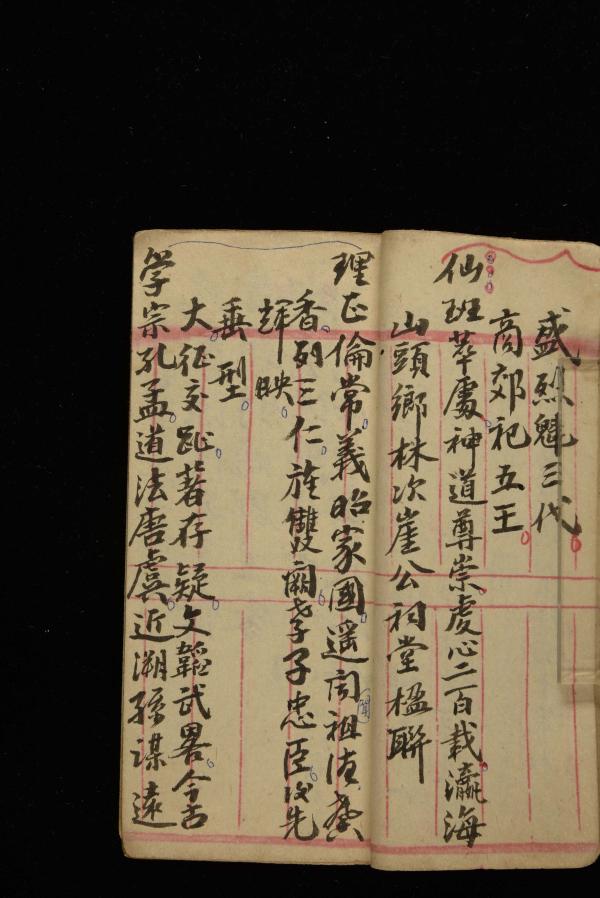 盛烈魁三代
高郊祀五王
仙班萃處神道尊崇虔心二百载瀛海
山頭鄉林次崖公祠堂楹聯
理正倫常義昭家國遥聞祖德發
香列三仁旌雙闕孝子忠臣改先
輝映
垂型
大征交趾著存疑文韜武畧今古
學宗孔孟道法唐虞近溯孫謀遠